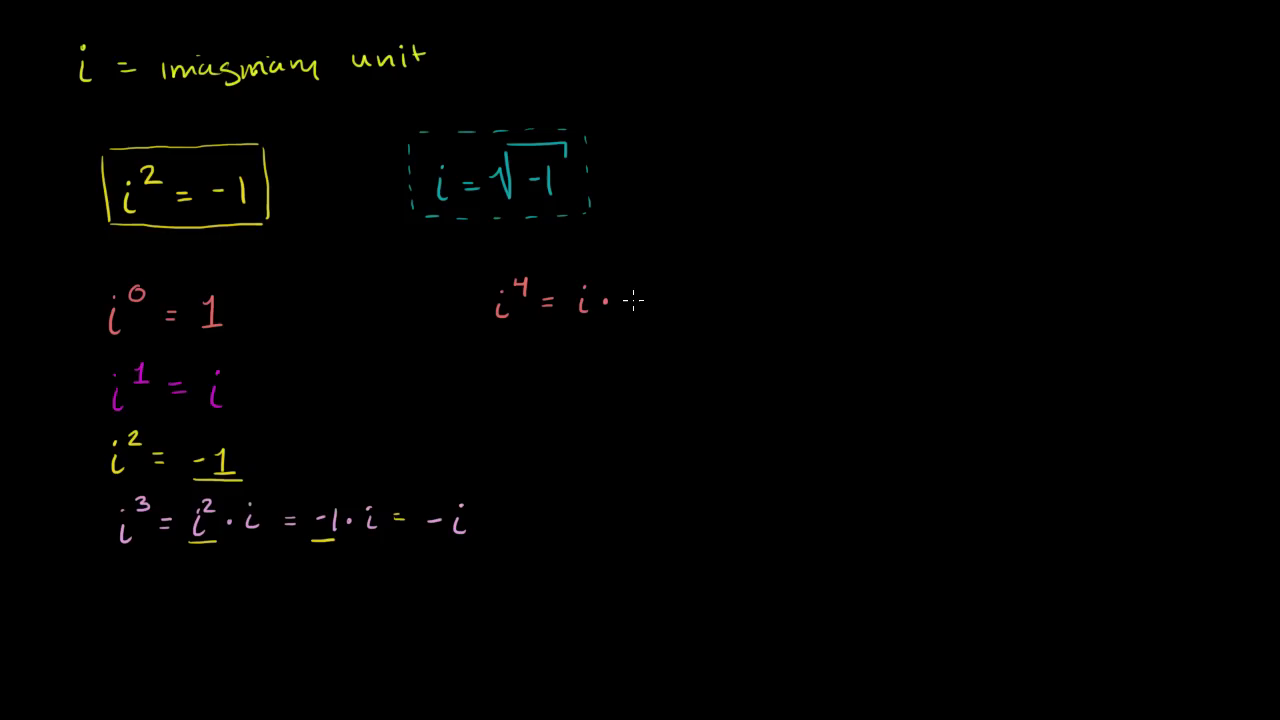 i = imaginary unit
i² = -1
i = √-1
i⁰ = 1
i⁴ = i ·
i¹ = i
i² = -1
i³ = i² · i = -1 · i = -i